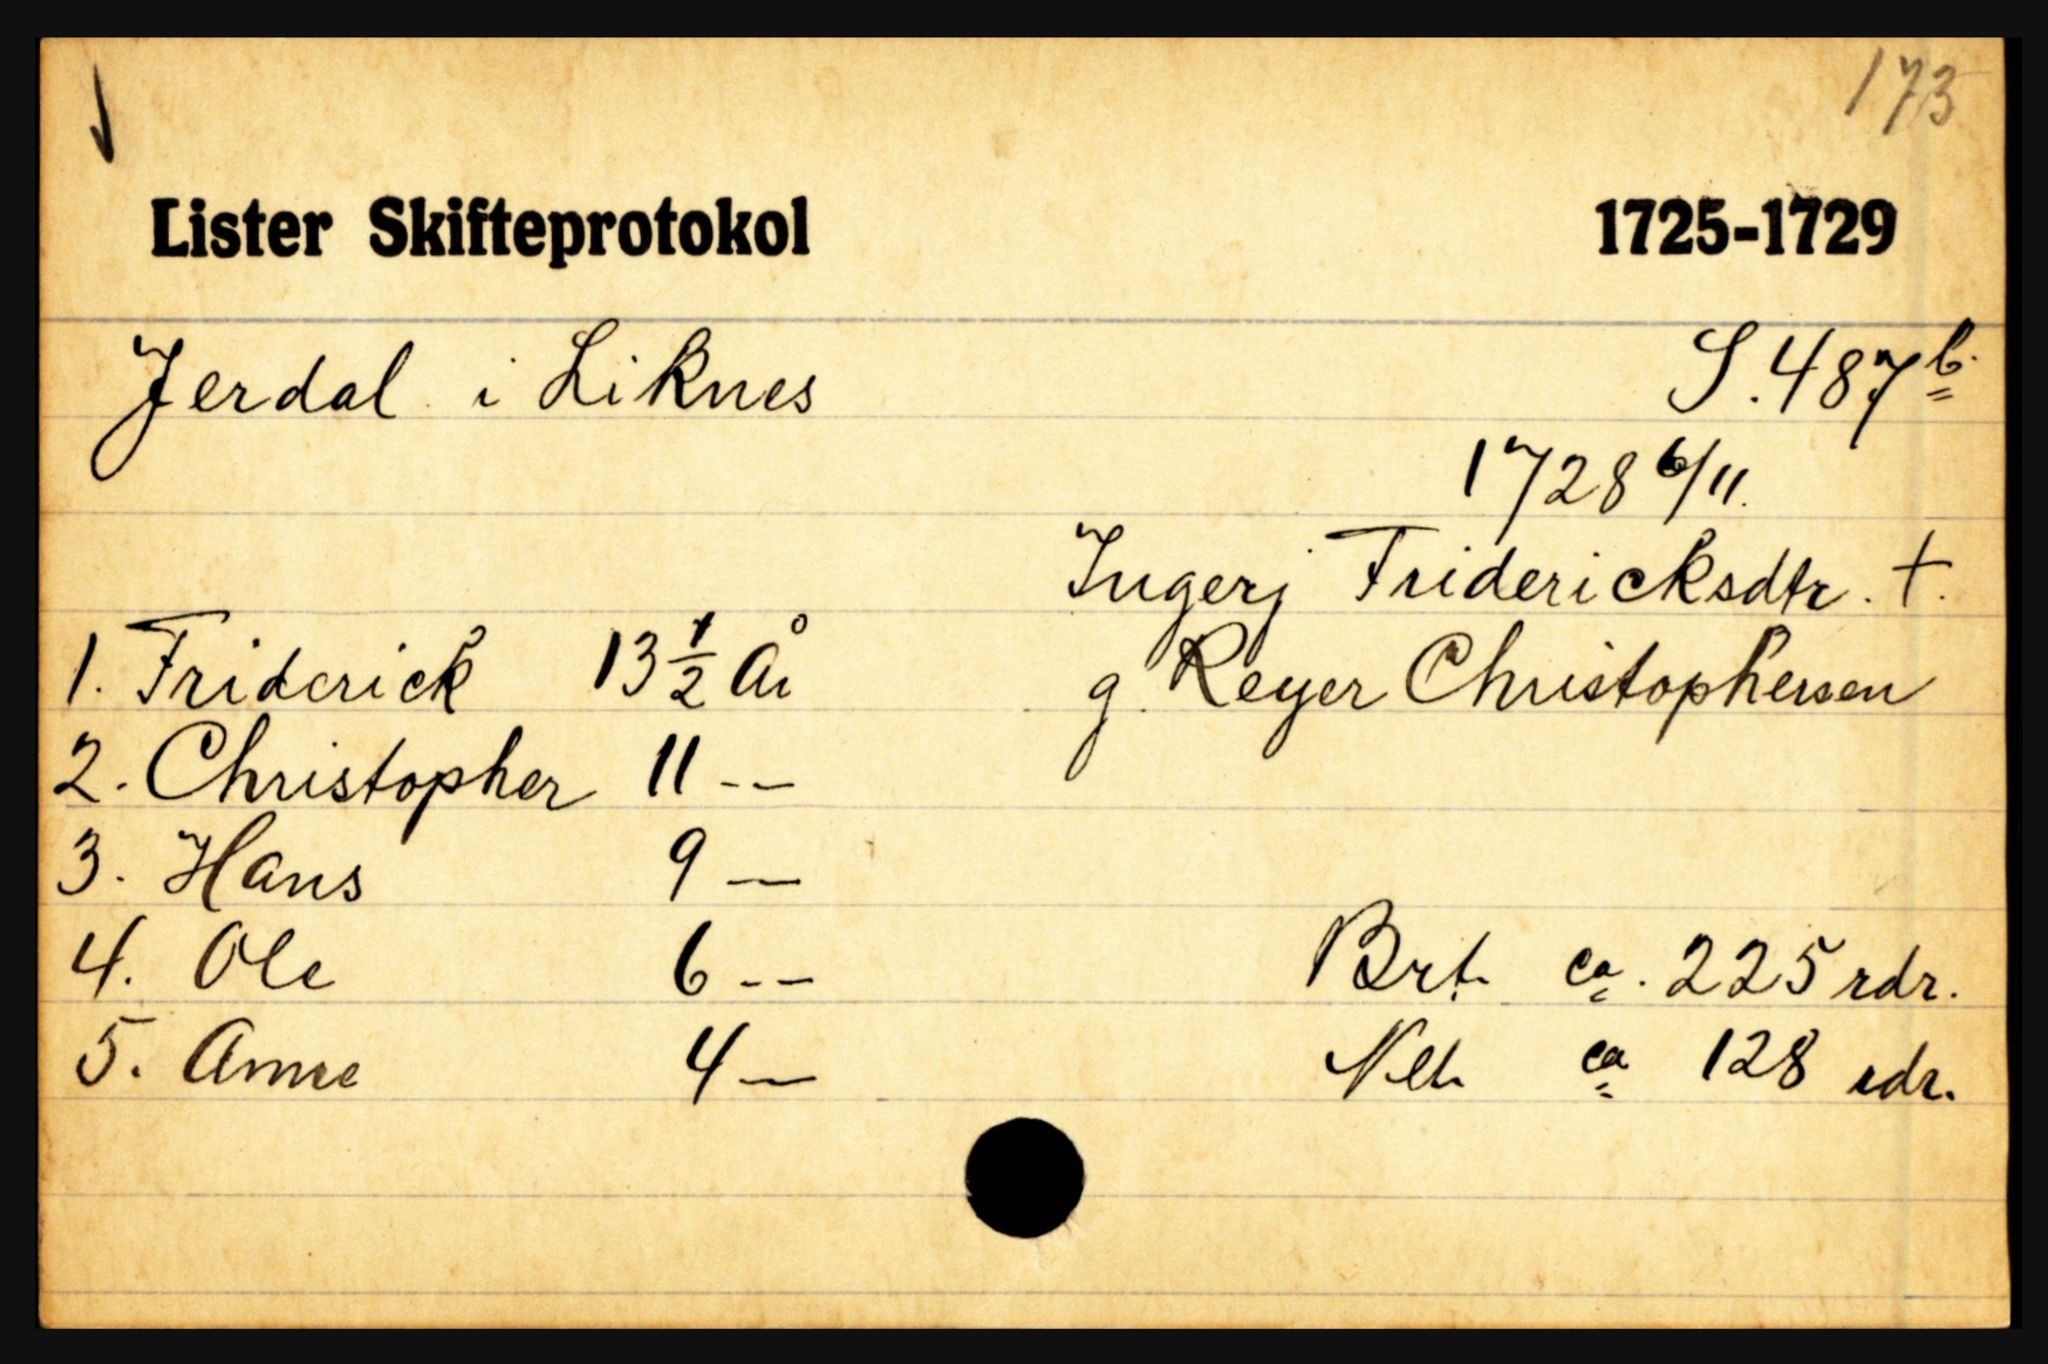 173
Lister Skifteprotokol 1725-1729
Jerdal i Liknes S. 487 b.
1728 6/11.
Ingerj Fridericksdtr. †.
1. Friderick 13 1/2 År g. Reyer Christophersen
2. Christopher 11 --
3. Hans 9 —
4. Ole 6 -- Brt. ca. 225 rdr.
5. Anne 4 — Net. ca 128 rdr.